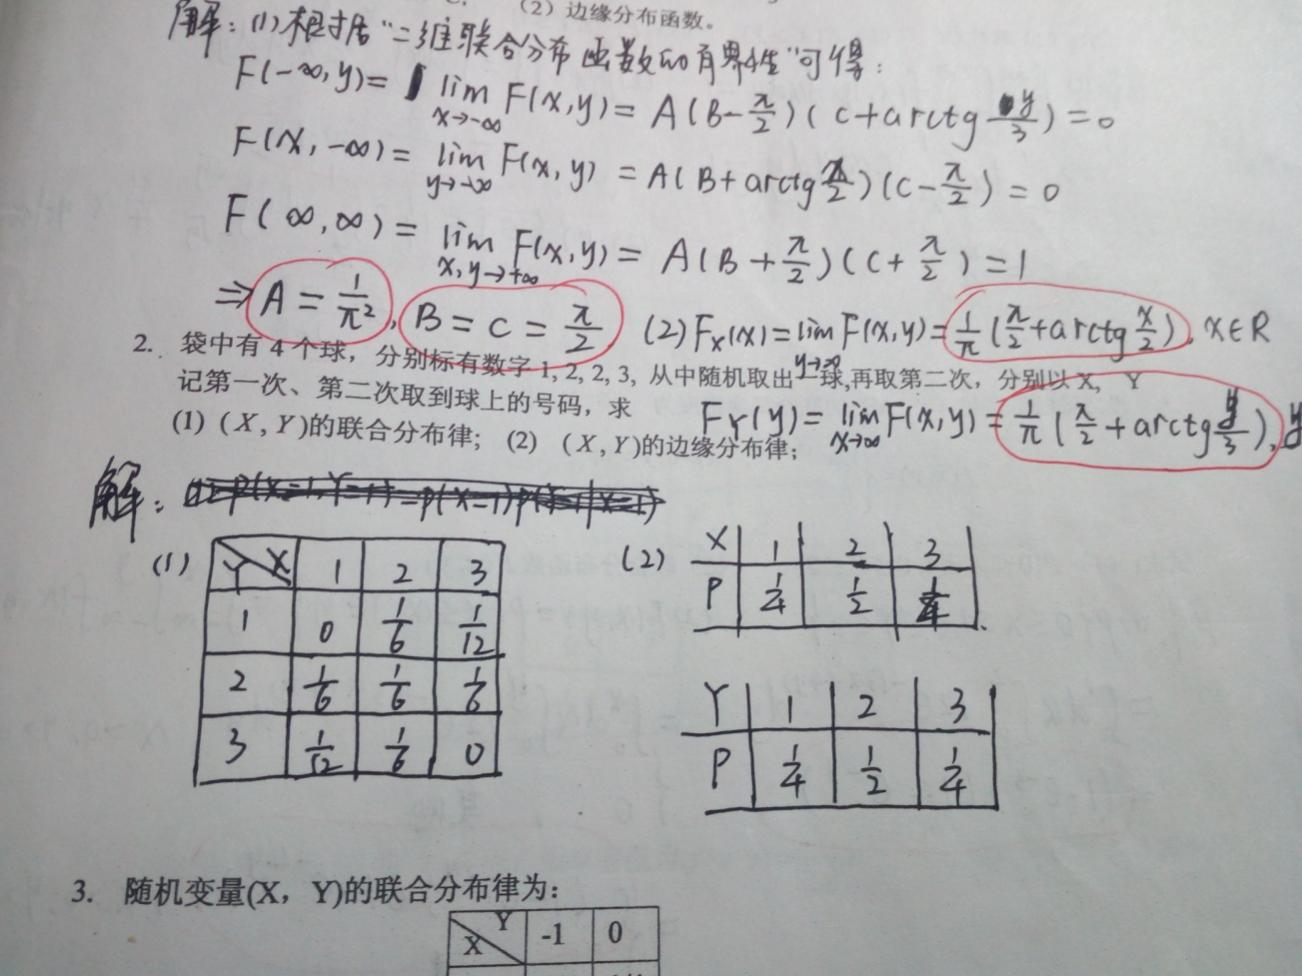 （2）边缘分布函数。
解：(1) 根据"二维联合分布函数的有界性"可得：
F(-∞,y)= lim x→-∞ F(x,y) = A(B-π/2)(C+arctg y/3) = 0
F(x,-∞)= lim y→-∞ F(x,y) = A(B+arctg x/2)(C-π/2) = 0
F(∞,∞)= lim x,y→+∞ F(x,y) = A(B+π/2)(C+π/2) = 1
⇒ A = 1/π², B = C = π/2 (2) Fx(x) = lim y→∞ F(x,y) = 1/π (π/2+arctg x/2), x∈R
2. 袋中有 4 个球，分别标有数字 1, 2, 2, 3, 从中随机取出一球,再取第二次，分别以 X, Y
记第一次、第二次取到球上的号码，求
FY(y) = lim x→∞ F(x,y) = 1/π (π/2+arctg y/3), y
(1) (X,Y)的联合分布律; (2) (X,Y)的边缘分布律;
解：
(1)
Y X 1 2 3
1 0 1/6 1/12
2 1/6 1/6 1/6
3 1/12 1/6 0
(2)
X 1 2 3
P 1/4 1/2 1/4
Y 1 2 3
P 1/4 1/2 1/4
3. 随机变量(X，Y)的联合分布律为：
X Y -1 0